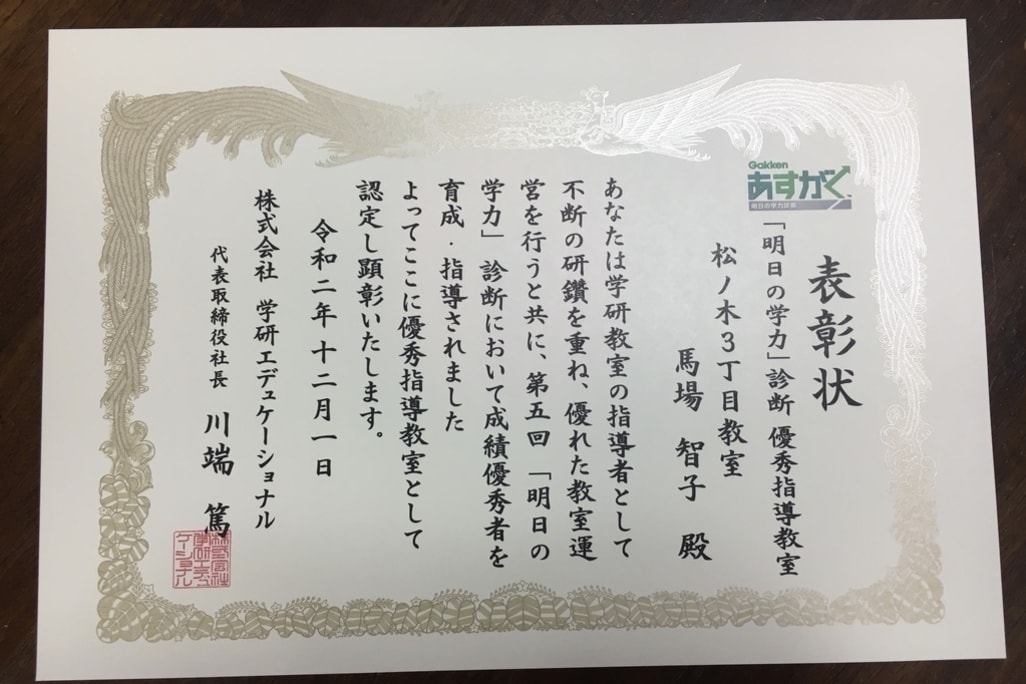 表彰状
Gakken
あすがく
明日の学力診断
「明日の学力」診断 優秀指導教室
松ノ木3丁目教室
馬場 智子 殿
あなたは学研教室の指導者として
不断の研鑽を重ね、優れた教室運
営を行うと共に、第五回 「明日の
学力」 診断において成績優秀者を
育成・指導されました
よってここに優秀指導教室として
認定し顕彰いたします。
令和二年 十二月一日
株式会社 学研エデュケーショナル
代表取締役社長 川端 篤
株式会社
学研エデュ
ケーショナル